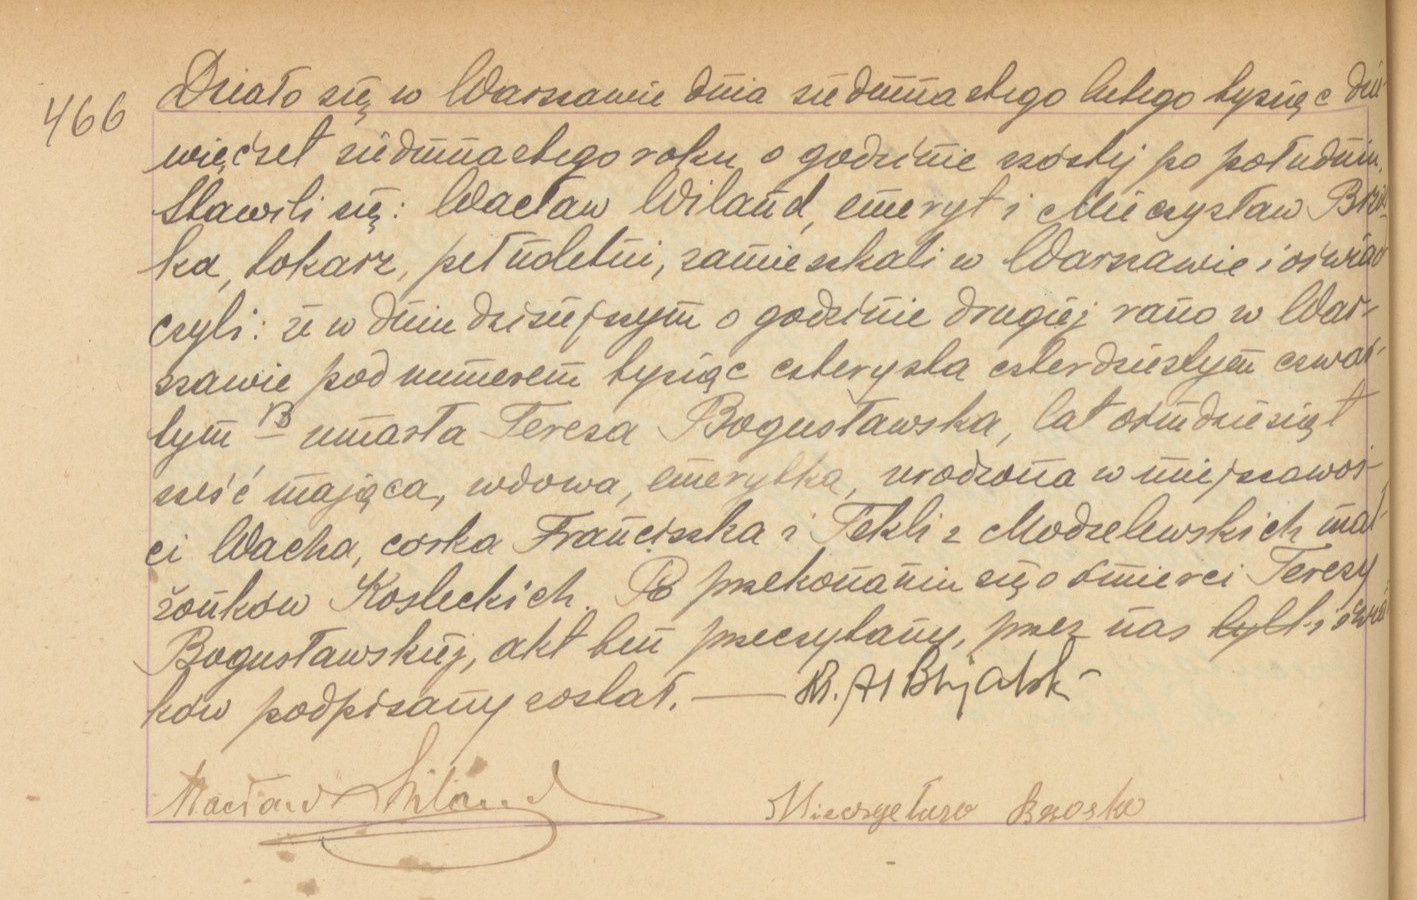 466
Działo się w Warszawie dnia siedmnastego lutego tysiąc dzie-
więćset siedmnastego roku o godzinie szóstej po południu.
Stawili się: Wacław Wiland, emeryt i Mieczysław Brzos-
ka, tokarz, pełnoletni, zamieszkali w Warszawie i oświad-
czyli: że w dniu dzisiejszym o godzinie drugiej rano w War-
szawie pod numerem tysiąc czterysta czterdziestym czwar-
tym B umarła Teresa Bogusławska, lat ośmdziesiąt
sześć mająca, wdowa, emerytka, urodzona w miejscowoś-
ci Wacha, córka Franciszka i Tekli z Modzelewskich mał-
żonków Kosleckich. Po przekonaniu się o śmierci Teresy
Bogusławskiej, akt ten przeczytany, przez nas tylko i świad-
ków podpisany został. —
Wacław Wiland
Mieczysław Brzoska